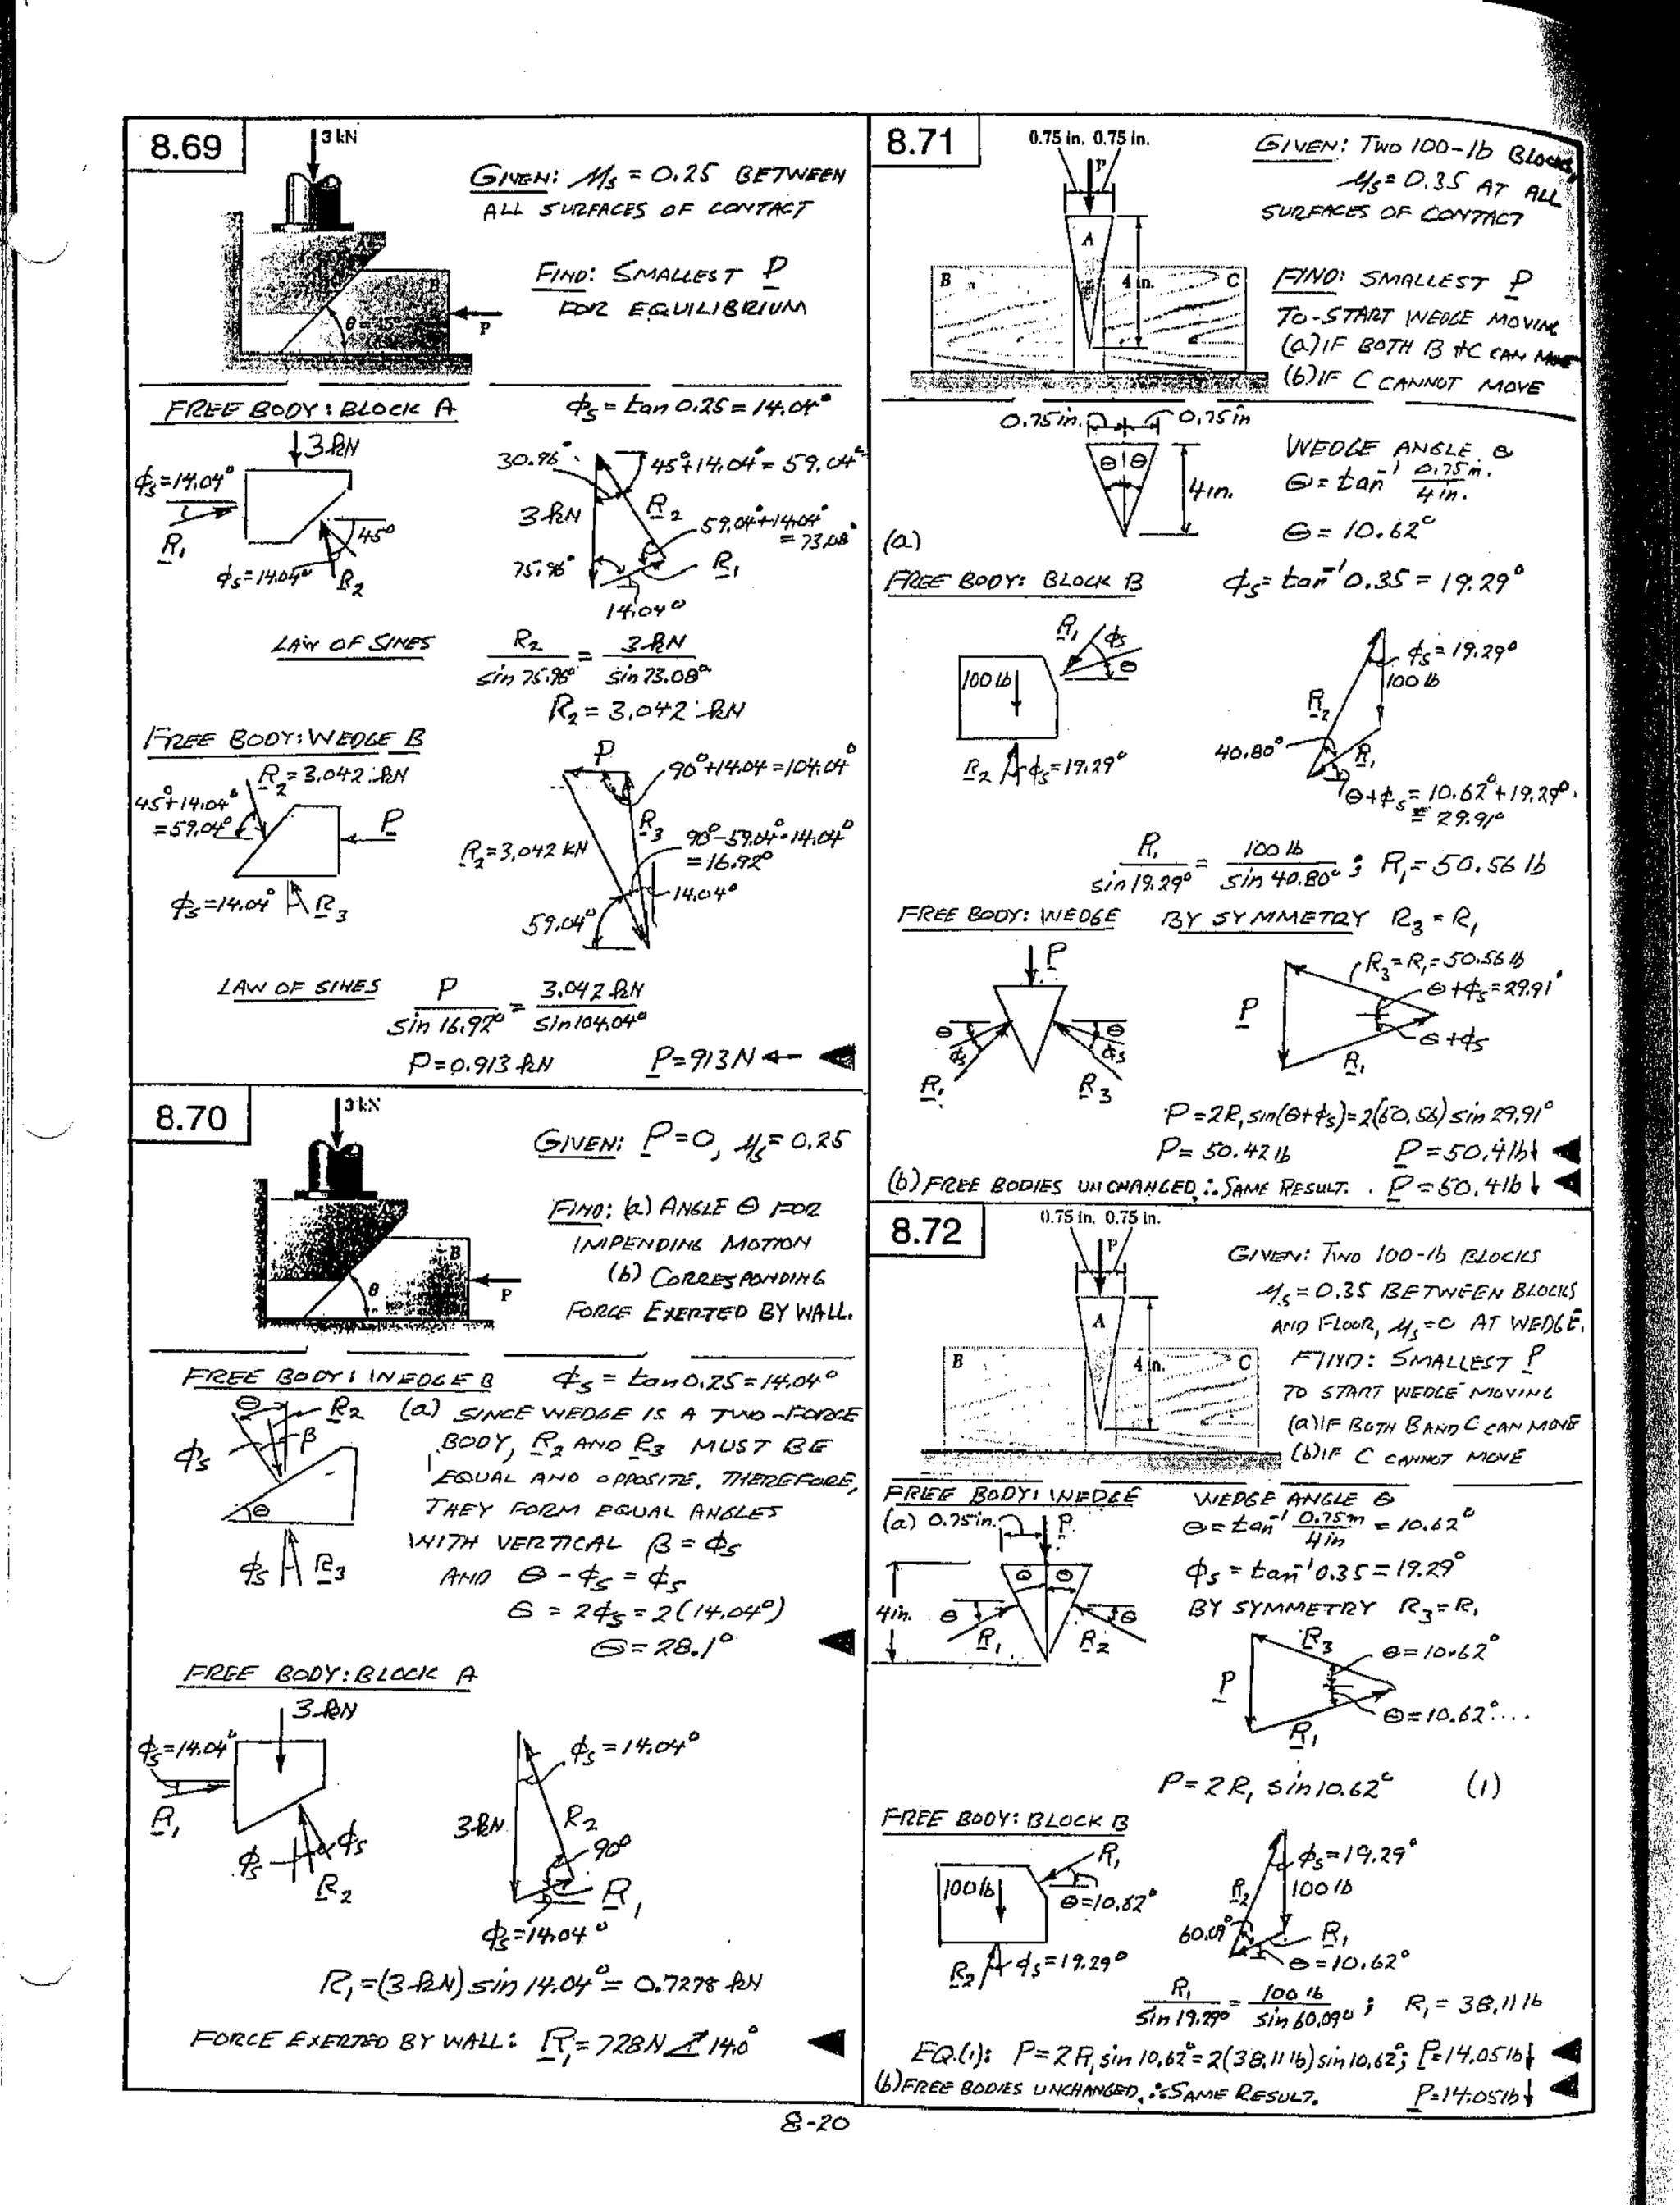 8.69
3 kN
GIVEN: μs = 0.25 BETWEEN
ALL SURFACES OF CONTACT
FIND: SMALLEST P
FOR EQUILIBRIUM
A
B
θ = 45°
P
FREE BODY: BLOCK A
φs = tan 0.25 = 14.04°
3 kN
φs=14.04°
R1
45°
φs=14.04°
R2
30.96°
45°+14.04°= 59.04°
3 kN
R2
59.04°+14.04°
= 73.08°
75.96°
R1
14.04°
LAW OF SINES
R2 / sin 75.96° = 3 kN / sin 73.08°
R2 = 3.042 kN
FREE BODY: WEDGE B
R2 = 3.042 kN
45°+14.04°
=59.04°
P
φs=14.04°
R3
P
90°+14.04=104.04°
R3
R2=3.042 kN
90°-59.04°-14.04°
= 16.92°
14.04°
59.04°
LAW OF SINES
P / sin 16.92° = 3.042 kN / sin 104.04°
P=0.913 kN
P=913 N ← ◄
8.70
3 kN
GIVEN: P=0, μs = 0.25
FIND: (a) ANGLE θ FOR
IMPENDING MOTION
(b) CORRESPONDING
FORCE EXERTED BY WALL.
A
B
θ
P
FREE BODY: WEDGE B
φs = tan 0.25 = 14.04°
θ
R2
β
φs
θ
φs
R3
(a) SINCE WEDGE IS A TWO-FORCE
BODY, R2 AND R3 MUST BE
EQUAL AND OPPOSITE. THEREFORE,
THEY FORM EQUAL ANGLES
WITH VERTICAL β = φs
AND θ - φs = φs
θ = 2φs = 2(14.04°)
θ = 28.1° ◄
FREE BODY: BLOCK A
3 kN
φs=14.04°
R1
φs
φs
R2
φs = 14.04°
3 kN
R2
90°
R1
φs=14.04°
R1 =(3 kN) sin 14.04° = 0.7278 kN
FORCE EXERTED BY WALL: R1 = 728 N ∠ 14.0° ◄
8.71
0.75 in. 0.75 in.
P
A
B
4 in.
C
GIVEN: TWO 100-lb BLOCKS,
μs = 0.35 AT ALL
SURFACES OF CONTACT
FIND: SMALLEST P
TO START WEDGE MOVING
(a) IF BOTH B + C CAN MOVE
(b) IF C CANNOT MOVE
0.75 in.
0.75 in
θ θ
4 in.
WEDGE ANGLE θ
θ = tan⁻¹ 0.75 in. / 4 in.
θ = 10.62°
(a)
FREE BODY: BLOCK B
φs = tan⁻¹ 0.35 = 19.29°
R1
φs
θ
100 lb
R2
φs=19.29°
φs = 19.29°
100 lb
R2
40.80°
R1
θ+φs = 10.62°+19.29°
= 29.91°
R1 / sin 19.29° = 100 lb / sin 40.80° ; R1 = 50.56 lb
FREE BODY: WEDGE
BY SYMMETRY R3 = R1
P
θ
θ
φs
φs
R1
R3
R3 = R1 = 50.56 lb
θ+φs = 29.91°
P
θ+φs
R1
P = 2R1 sin(θ+φs) = 2(50.56) sin 29.91°
P = 50.42 lb
P = 50.4 lb ↓ ◄
(b) FREE BODIES UNCHANGED ∴ SAME RESULT. P = 50.4 lb ↓ ◄
8.72
0.75 in. 0.75 in.
P
A
B
4 in.
C
GIVEN: TWO 100-lb BLOCKS
μs = 0.35 BETWEEN BLOCKS
AND FLOOR, μs = 0 AT WEDGE.
FIND: SMALLEST P
TO START WEDGE MOVING
(a) IF BOTH B AND C CAN MOVE
(b) IF C CANNOT MOVE
FREE BODY: WEDGE
WEDGE ANGLE θ
(a) 0.75 in.
P
θ = tan⁻¹ 0.75 in / 4 in = 10.62°
θ θ
4 in.
θ
θ
R1
R2
φs = tan⁻¹ 0.35 = 19.29°
BY SYMMETRY R3 = R1
R3
θ = 10.62°
P
θ = 10.62°
R1
P = 2 R1 sin 10.62° (1)
FREE BODY: BLOCK B
R1
100 lb
θ=10.62°
R2
φs = 19.29°
φs = 19.29°
R2
100 lb
60.09°
R1
θ = 10.62°
R1 / sin 19.29° = 100 lb / sin 60.09° ; R1 = 38.11 lb
EQ.(1): P = 2 R1 sin 10.62° = 2(38.11 lb) sin 10.62°; P = 14.05 lb ↓ ◄
(b) FREE BODIES UNCHANGED, ∴ SAME RESULT. P = 14.05 lb ↓ ◄
8-20